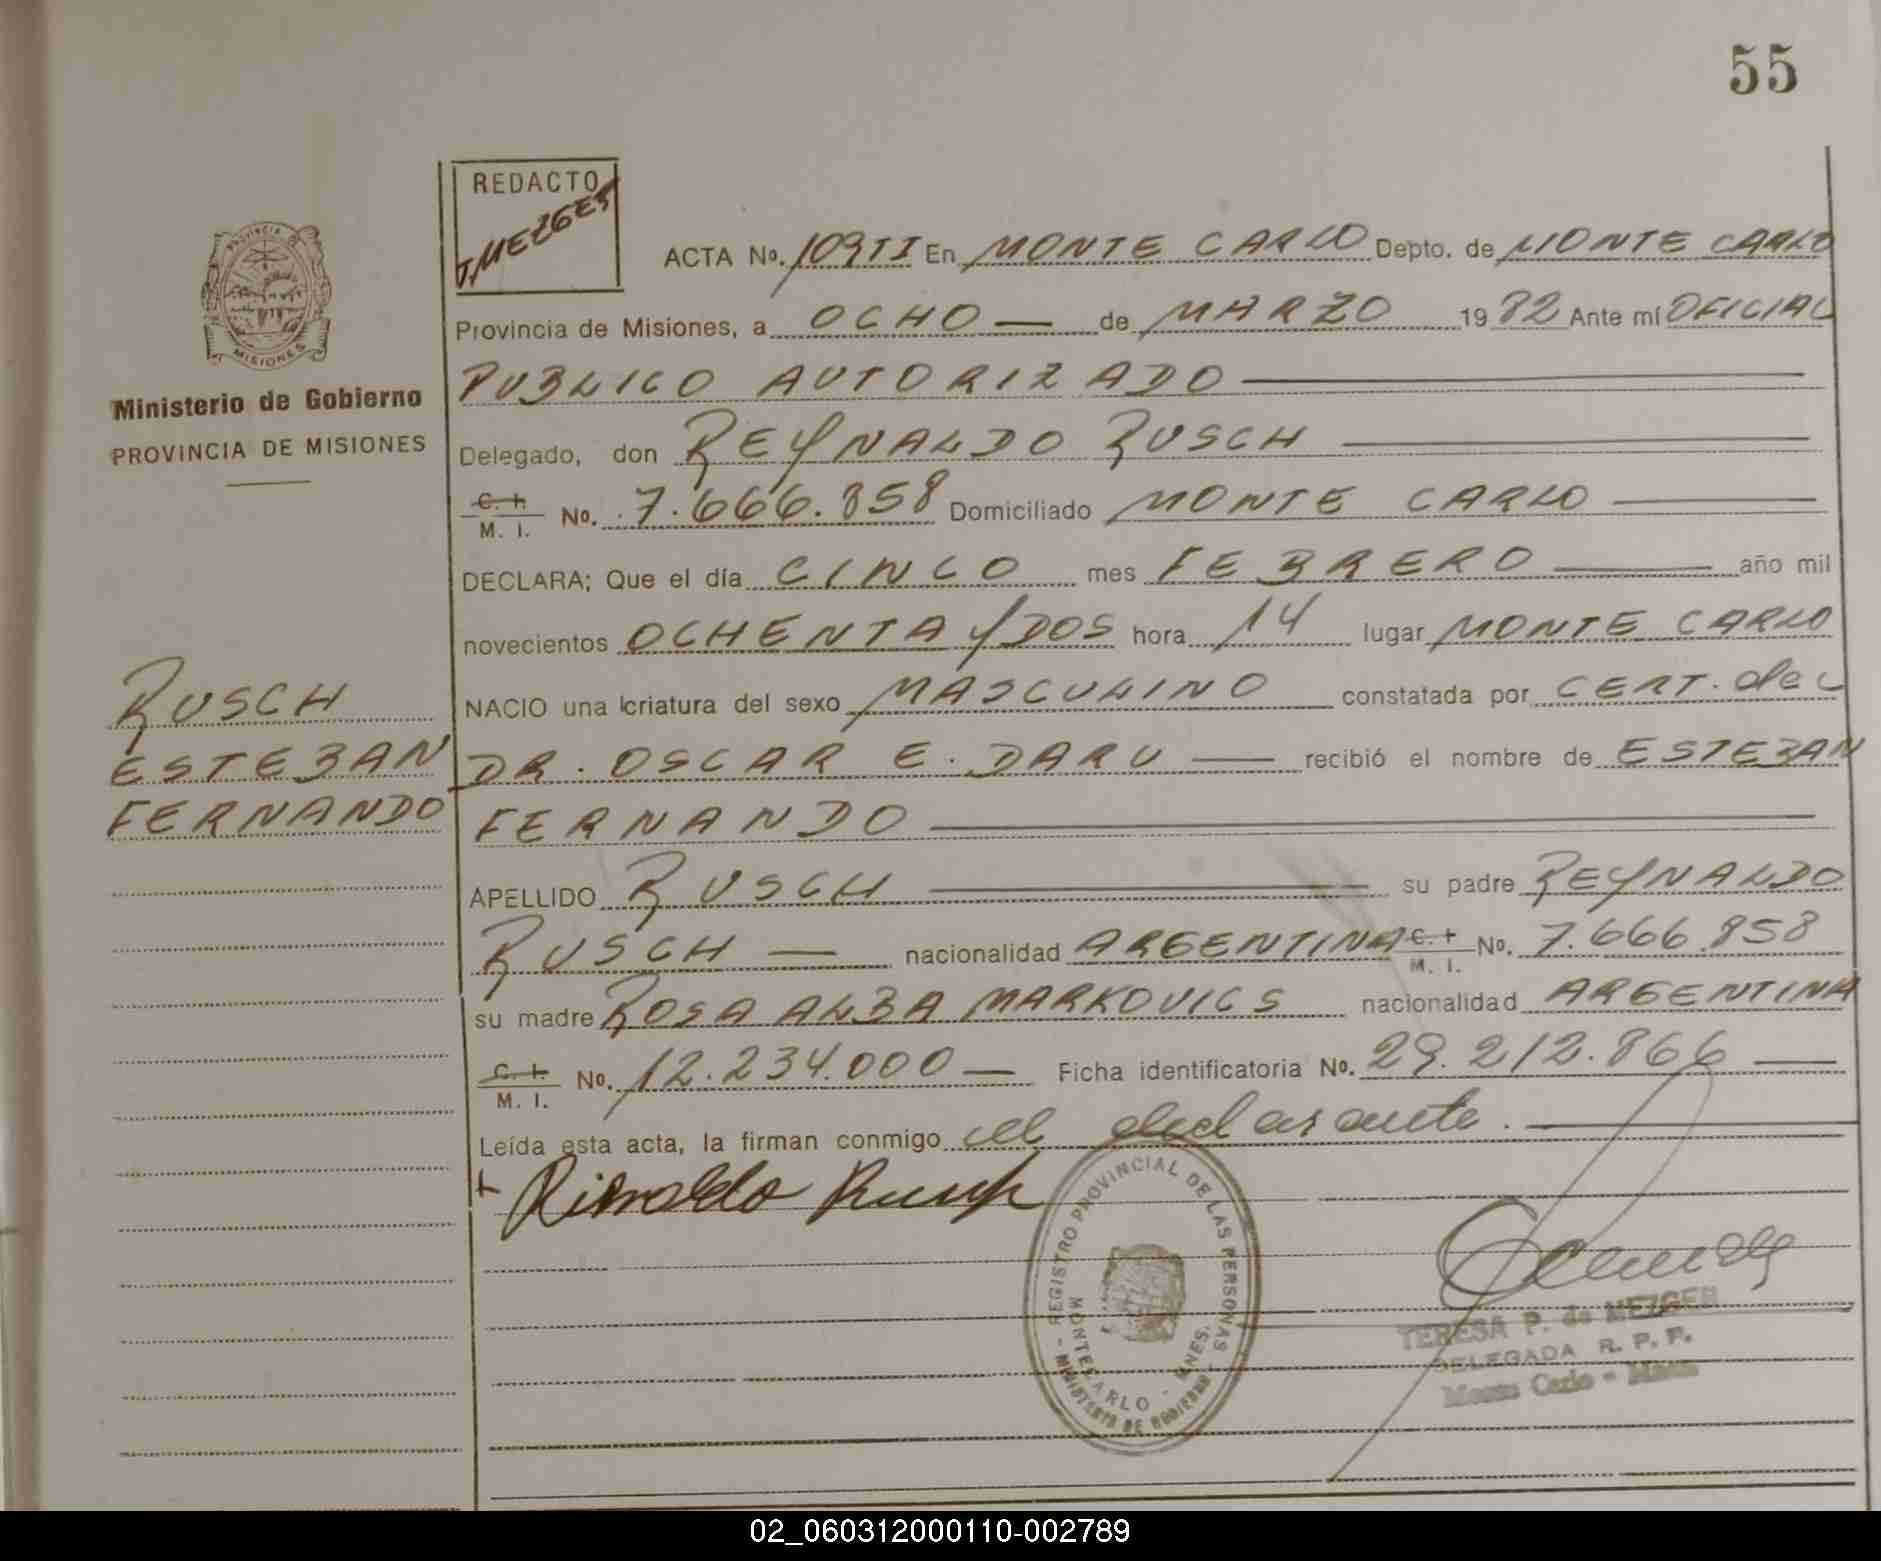 55
REDACTO
T. MEZGER
PROVINCIA
MISIONES
Ministerio de Gobierno
PROVINCIA DE MISIONES
RUSCH
ESTEBAN
FERNANDO
ACTA No. 109TI En MONTE CARLO Depto. de MONTE CARLO
Provincia de Misiones, a OCHO — de MARZO 1982 Ante mí OFICIAL
PUBLICO AUTORIZADO —
Delegado, don REYNALDO RUSCH —
C. I. / M. I. No. 7.666.858 Domiciliado MONTE CARLO —
DECLARA; Que el día CINCO mes FEBRERO — año mil
novecientos OCHENTA Y DOS hora 14 lugar MONTE CARLO
NACIO una criatura del sexo MASCULINO constatada por CERT. del
DR. OSCAR E. DARU — recibió el nombre de ESTEBAN
FERNANDO —
APELLIDO RUSCH — su padre REYNALDO
RUSCH — nacionalidad ARGENTINA C. I. / M. I. No. 7.666.858
su madre ROSA ALBA MARKOVICS nacionalidad ARGENTINA
C. I. / M. I. No. 12.234.000 — Ficha identificatoria No. 29.212.866 —
Leída esta acta, la firman conmigo el declarante. —
Rinaldo Rusch
- REGISTRO PROVINCIAL DE LAS PERSONAS -
MINISTERIO DE GOBIERNO
MONTECARLO - MNES.
TERESA P. de MEZGER
DELEGADA R. P. P.
Monte Carlo - Mnes
02_060312000110-002789